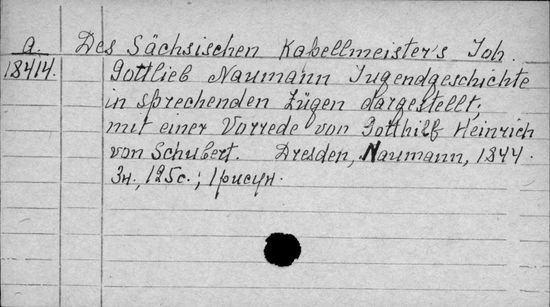 a. Des Sächsischen Kapellmeister's Joh.
18414. Gottlieb Naumann Jugendgeschichte
in sprechenden Zügen dargestellt.
mit einer Vorrede von Gotthilf Heinrich
von Schubert. Dresden, Naumann, 1844.
3н., 125с.; 1 рисун.